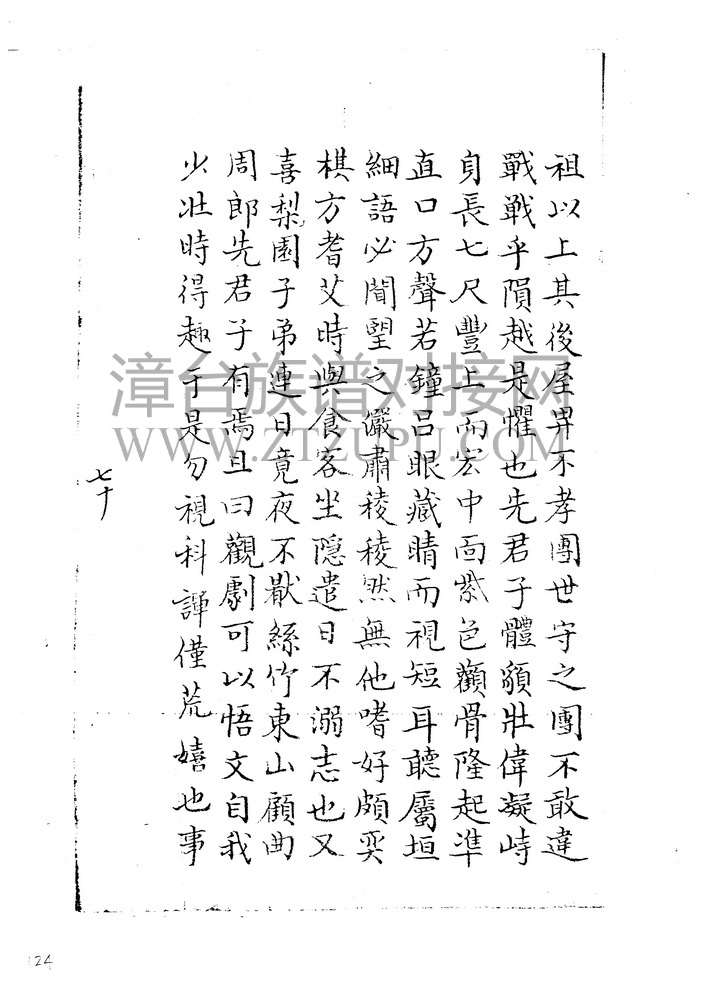 祖以上其後屋畀不孝團世守之團不敢違
戰戰乎隕越是懼也先君子體頯壯偉凝峙
身長七尺豐上而宏中面紫色顴骨隆起準
直口方聲若鐘呂眼藏睛而視短耳聽屬垣
細語必聞望之儼肅稜稜然無他嗜好頗奕
棋方耆艾時與食客坐隱遣日不溺志也又
喜梨園子弟連日竟夜不厭絲竹東山顧曲
周郎先君子有焉且曰觀劇可以悟文自我
少壯時得趣于是勿視科諢僅荒嬉也事
七十
漳台族谱对接网
WWW.ZTZUPU.COM
124